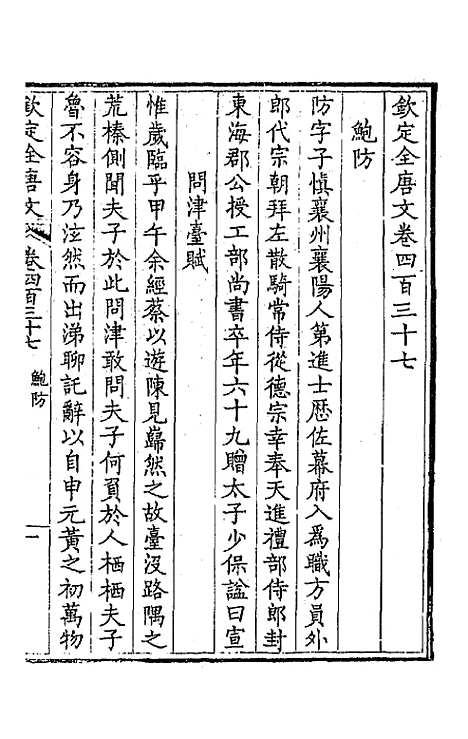 欽定全唐文卷四百三十七
鮑防
防字子愼襄州襄陽人第進士歷佐幕府入爲職方員外
郎代宗朝拜左散騎常侍從德宗幸奉天進禮部侍郎封
東海郡公授工部尚書卒年六十九贈太子少保謚曰宣
問津臺賦
惟歲臨乎甲午余經蔡以遊陳見巋然之故臺沒路隅之
荒榛側聞夫子於此問津敢問夫子何負於人栖栖夫子
魯不容身乃泫然而出涕聊託辭以自申元黃之初萬物
欽定全唐文 卷四百三十七 鮑防 一